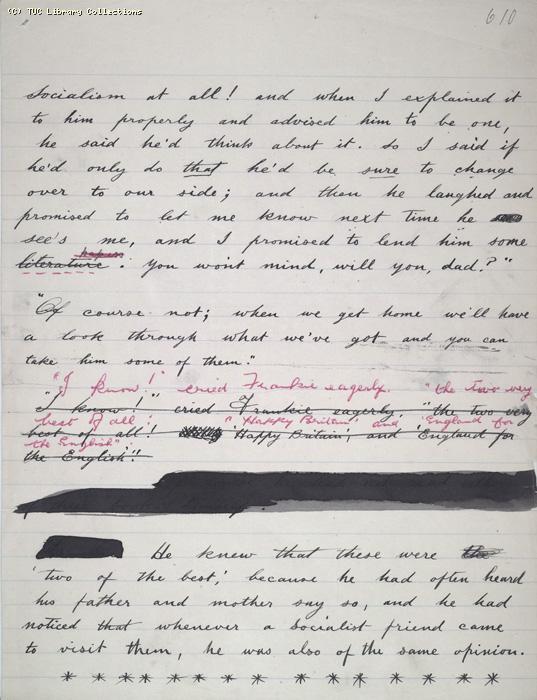 (C) TUC Library Collections
610
Socialism at all! and when I explained it
to him properly and advised him to be one,
he said he'd think about it. so I said if
he'd only do that he'd be sure to change
over to our side; and then he laughed and
promised to let me know next time he
see's me, and I promised to lend him some
literature. You won't mind, will you, dad?"
"Of course not; when we get home we'll have
a look through what we've got and you can
take him some of them."
"I know!" cried Frankie eagerly. "the two very
"I know!" cried Frankie eagerly, "the two very
best of all: "Happy Britain" and 'England for
best of all! 'Happy Britain', and 'England for
the English".
the English'."
He knew that these were the
'two of the best,' because he had often heard
his father and mother say so, and he had
noticed that whenever a Socialist friend came
to visit them, he was also of the same opinion.
* * * * * * * * * * * * * * * *